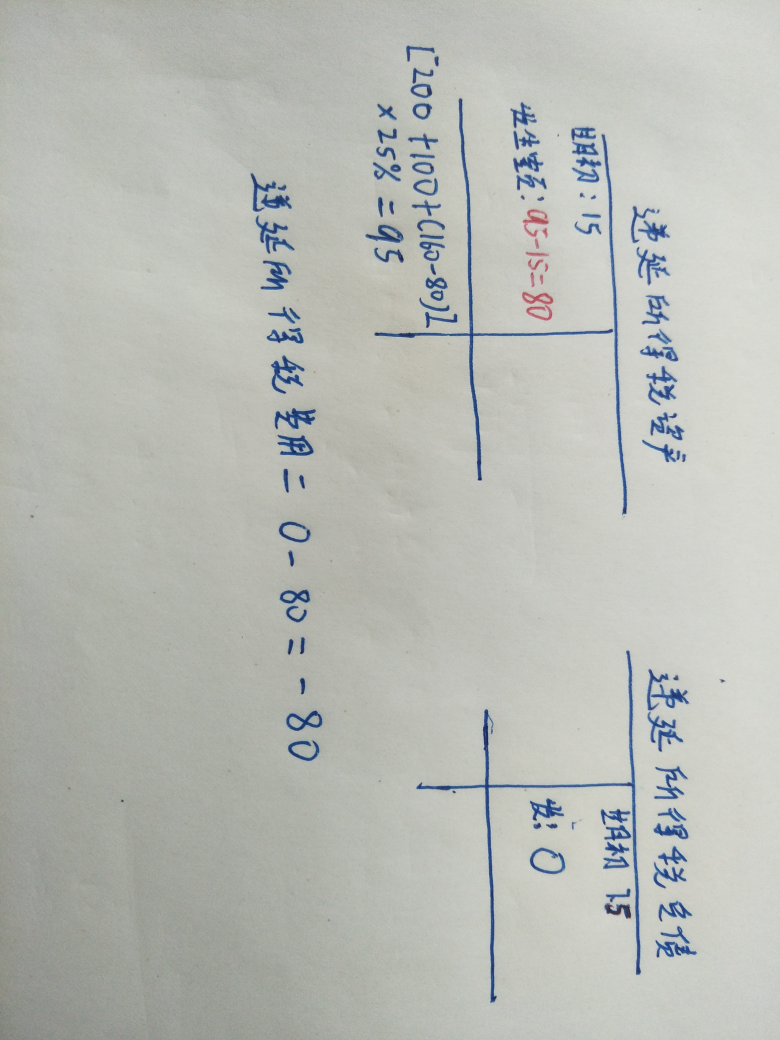 递延所得税资产
期初：15
发生额：95-15=80
[200+100+(160-80)]
×25%=95
递延所得税负债
期初 75
发：0
递延所得税费用=0-80=-80